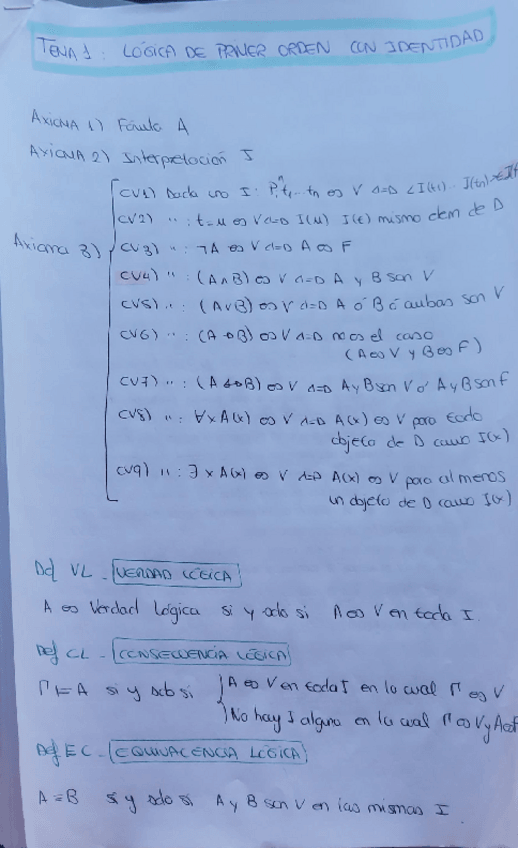 TEMA 1: LÓGICA DE PRIMER ORDEN CON IDENTIDAD
AXIOMA 1) Fórmula A
AXIOMA 2) Interpretación I
Axioma 3)
CV1) Dada una I: Pⁿt₁...tₙ es V ⇔ <I(t₁)... I(tₙ)> ∈ I(
CV2) " : t=u es V ⇔ I(u) I(t) mismo elem de D
CV3) " : ¬A es V ⇔ A es F
CV4) " : (A∧B) es V ⇔ A y B son V
CV5) " : (A∨B) es V ⇔ A ó B ó ambas son V
CV6) " : (A→B) es V ⇔ no es el caso
(A es V y B es F)
CV7) " : (A↔B) es V ⇔ A y B son V ó A y B son F
CV8) " : ∀x A(x) es V ⇔ A(x) es V para todo
objeto de D como I(x)
CV9) " : ∃x A(x) es V ⇔ A(x) es V para al menos
un objeto de D como I(x)
Def VL - VERDAD LÓGICA
A es Verdad Lógica si y solo si A es V en toda I.
Def CL - CONSECUENCIA LÓGICA
Γ ⊨ A si y solo si
A es V en toda I en la cual Γ es V
No hay I alguna en la cual Γ es V y A es F
Def EC - EQUIVALENCIA LÓGICA
A ≡ B si y solo si A y B son V en las mismas I.